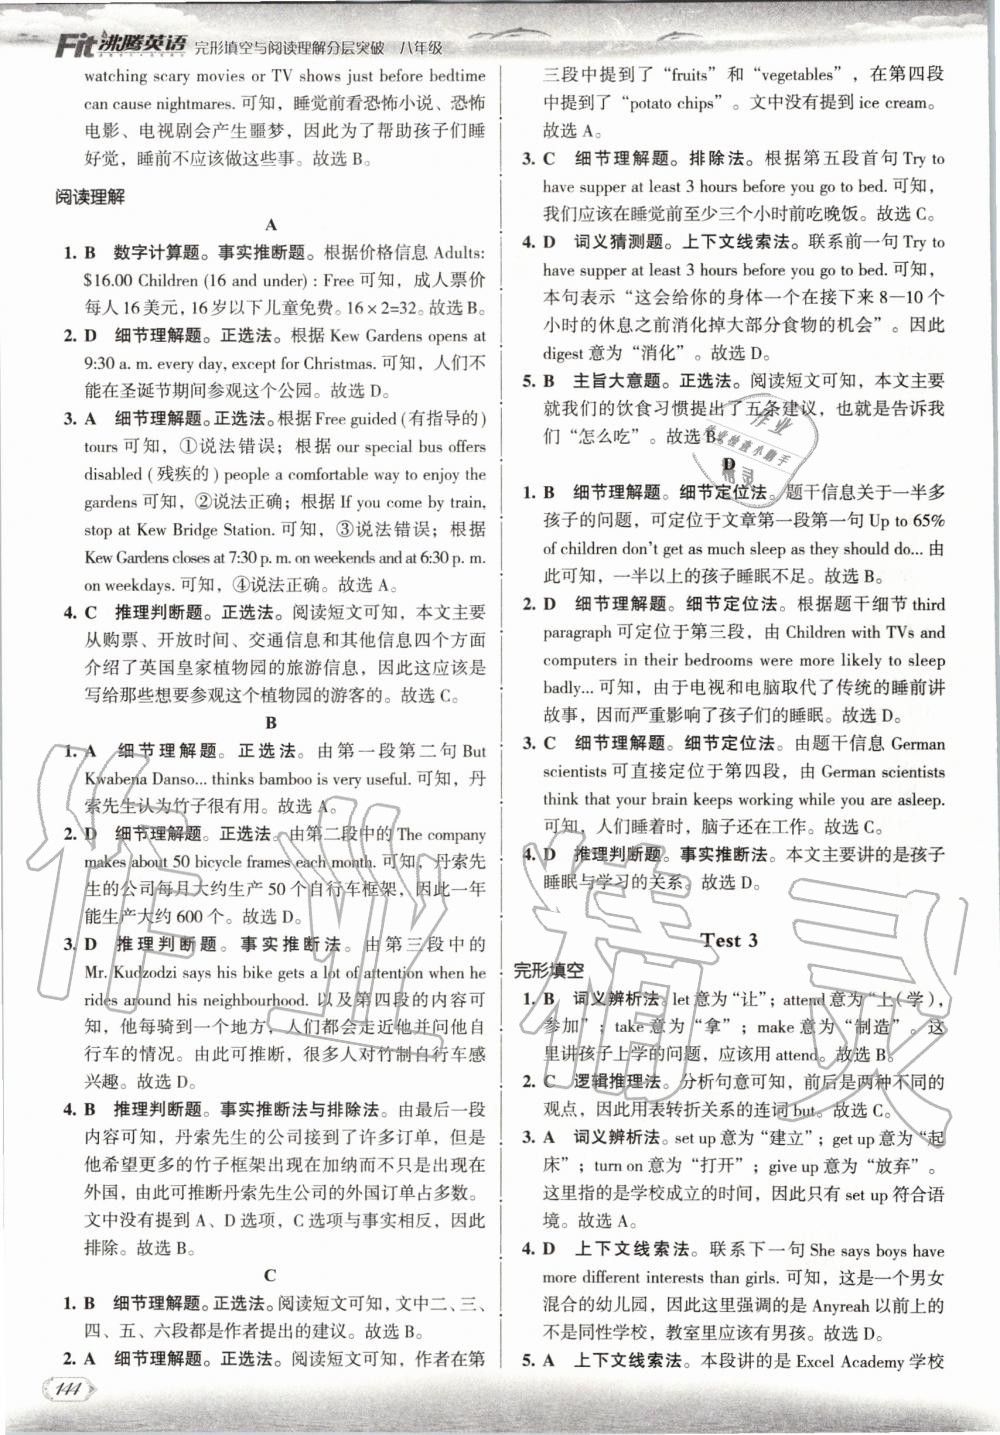 Fit 沸腾英语 完形填空与阅读理解分层突破 八年级
watching scary movies or TV shows just before bedtime
can cause nightmares. 可知，睡觉前看恐怖小说、恐怖
电影、电视剧会产生噩梦，因此为了帮助孩子们睡
好觉，睡前不应该做这些事。故选 B。
阅读理解
A
1. B 数字计算题。事实推断题。根据价格信息 Adults:
$16.00 Children (16 and under) : Free 可知，成人票价
每人 16 美元，16 岁以下儿童免费。16×2=32。故选 B。
2. D 细节理解题。正选法。根据 Kew Gardens opens at
9:30 a. m. every day, except for Christmas. 可知，人们不
能在圣诞节期间参观这个公园。故选 D。
3. A 细节理解题。正选法。根据 Free guided (有指导的)
tours 可知，①说法错误；根据 our special bus offers
disabled (残疾的) people a comfortable way to enjoy the
gardens 可知，②说法正确；根据 If you come by train,
stop at Kew Bridge Station. 可知，③说法错误；根据
Kew Gardens closes at 7:30 p. m. on weekends and at 6:30 p. m.
on weekdays. 可知，④说法正确。故选 A。
4. C 推理判断题。正选法。阅读短文可知，本文主要
从购票、开放时间、交通信息和其他信息四个方面
介绍了英国皇家植物园的旅游信息，因此这应该是
写给那些想要参观这个植物园的游客的。故选 C。
B
1. A 细节理解题。正选法。由第一段第二句 But
Kwabena Danso... thinks bamboo is very useful. 可知，丹
索先生认为竹子很有用。故选 A。
2. D 细节理解题。正选法。由第二段中的 The company
makes about 50 bicycle frames each month. 可知，丹索先
生的公司每月大约生产 50 个自行车框架，因此一年
能生产大约 600 个。故选 D。
3. D 推理判断题。事实推断法。由第三段中的
Mr. Kudzodzi says his bike gets a lot of attention when he
rides around his neighbourhood. 以及第四段的内容可
知，他每骑到一个地方，人们都会走近他并问他自
行车的情况。由此可推断，很多人对竹制自行车感
兴趣。故选 D。
4. B 推理判断题。事实推断法与排除法。由最后一段
内容可知，丹索先生的公司接到了许多订单，但是
他希望更多的竹子框架出现在加纳而不只是出现在
外国，由此可推断丹索先生公司的外国订单占多数。
文中没有提到 A、D 选项，C 选项与事实相反，因此
排除。故选 B。
C
1. B 细节理解题。正选法。阅读短文可知，文中二、三、
四、五、六段都是作者提出的建议。故选 B。
2. A 细节理解题。正选法。阅读短文可知，作者在第
三段中提到了 “fruits” 和 “vegetables”，在第四段
中提到了 “potato chips” 。文中没有提到 ice cream。
故选 A。
3. C 细节理解题。排除法。根据第五段首句 Try to
have supper at least 3 hours before you go to bed. 可知，
我们应该在睡觉前至少三个小时前吃晚饭。故选 C。
4. D 词义猜测题。上下文线索法。联系前一句 Try to
have supper at least 3 hours before you go to bed. 可知，
本句表示 “这会给你的身体一个在接下来 8—10 个
小时的休息之前消化掉大部分食物的机会” 。因此
digest 意为 “消化” 。故选 D。
5. B 主旨大意题。正选法。阅读短文可知，本文主要
就我们的饮食习惯提出了五条建议，也就是告诉我
们 “怎么吃” 。故选 B。
D
1. B 细节理解题。细节定位法。题干信息关于一半多
孩子的问题，可定位于文章第一段第一句 Up to 65%
of children don't get as much sleep as they should do... 由
此可知，一半以上的孩子睡眠不足。故选 B。
2. D 细节理解题。细节定位法。根据题干细节 third
paragraph 可定位于第三段，由 Children with TVs and
computers in their bedrooms were more likely to sleep
badly... 可知，由于电视和电脑取代了传统的睡前讲
故事，因而严重影响了孩子们的睡眠。故选 D。
3. C 细节理解题。细节定位法。由题干信息 German
scientists 可直接定位于第四段，由 German scientists
think that your brain keeps working while you are asleep.
可知，人们睡着时，脑子还在工作。故选 C。
4. D 推理判断题。事实推断法。本文主要讲的是孩子
睡眠与学习的关系。故选 D。
Test 3
完形填空
1. B 词义辨析法。let 意为 “让”；attend 意为 “上 (学)，
参加”；take 意为 “拿”；make 意为 “制造” 。这
里讲孩子上学的问题，应该用 attend。故选 B。
2. C 逻辑推理法。分析句意可知，前后是两种不同的
观点，因此用表转折关系的连词 but。故选 C。
3. A 词义辨析法。set up 意为 “建立”；get up 意为 “起
床”；turn on 意为 “打开”；give up 意为 “放弃” 。
这里指的是学校成立的时间，因此只有 set up 符合语
境。故选 A。
4. D 上下文线索法。联系下一句 She says boys have
more different interests than girls. 可知，这是一个男女
混合的幼儿园，因此这里强调的是 Anyreah 以前上的
不是同性学校，教室里应该有男孩。故选 D。
5. A 上下文线索法。本段讲的是 Excel Academy 学校
144
作业精灵
作业
作业检查小助手
精灵